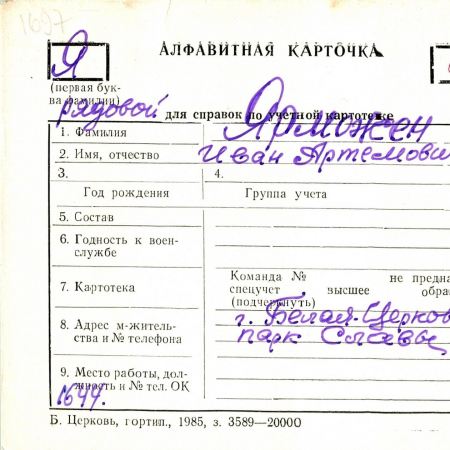 1697
АЛФАВИТНАЯ КАРТОЧКА
Я
(первая бук-
ва фамилии)
рядовой для справок по учетной картотеке
1. Фамилия Ярможен
2. Имя, отчество Иван Артемови
3. 4.
Год рождения Группа учета
5. Состав
6. Годность к воен-
службе
7. Картотека
Команда № не предна
спецучет высшее обра
(подчеркнуть)
8. Адрес м-житель-
ства и № телефона
г. Белая-Церков
парк Славы
9. Место работы, дол-
жность и № тел. ОК
1644.
Б. Церковь, гортип., 1985, з. 3589—20000